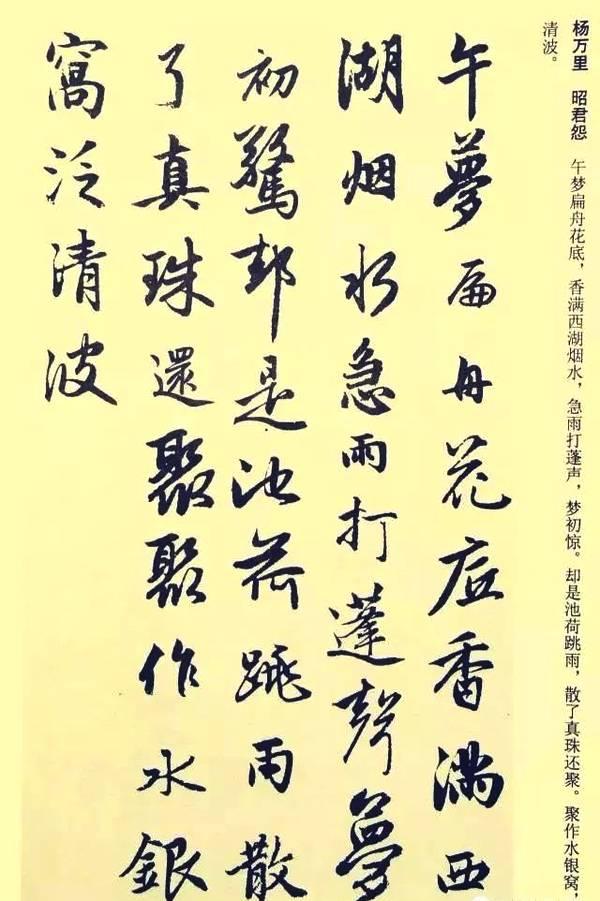 杨万里 昭君怨 午梦扁舟花底，香满西湖烟水，急雨打蓬声，梦初惊。却是池荷跳雨，散了真珠还聚。聚作水银窝，
清波。
午夢扁舟花底香滿西
湖烟水急雨打蓬聲夢
初驚却是池荷跳雨散
了真珠還聚聚作水銀
窩泛清波